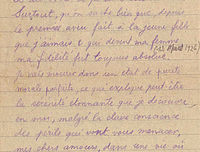 Surtout, qu'on sache bien que, depuis
le premier aveu fait à la jeune fille
que j'aimais et qui devint ma femme
(en Mai 1926)
ma fidélité fut toujours absolue.
Je vais mourir dans un état de pureté
morale parfaite, ce qui explique peut-être
la sérénité étonnante que je découvre
en moi, malgré la claire conscience
des périls qui vont vous menacer,
mes chers amours, dans une vie où